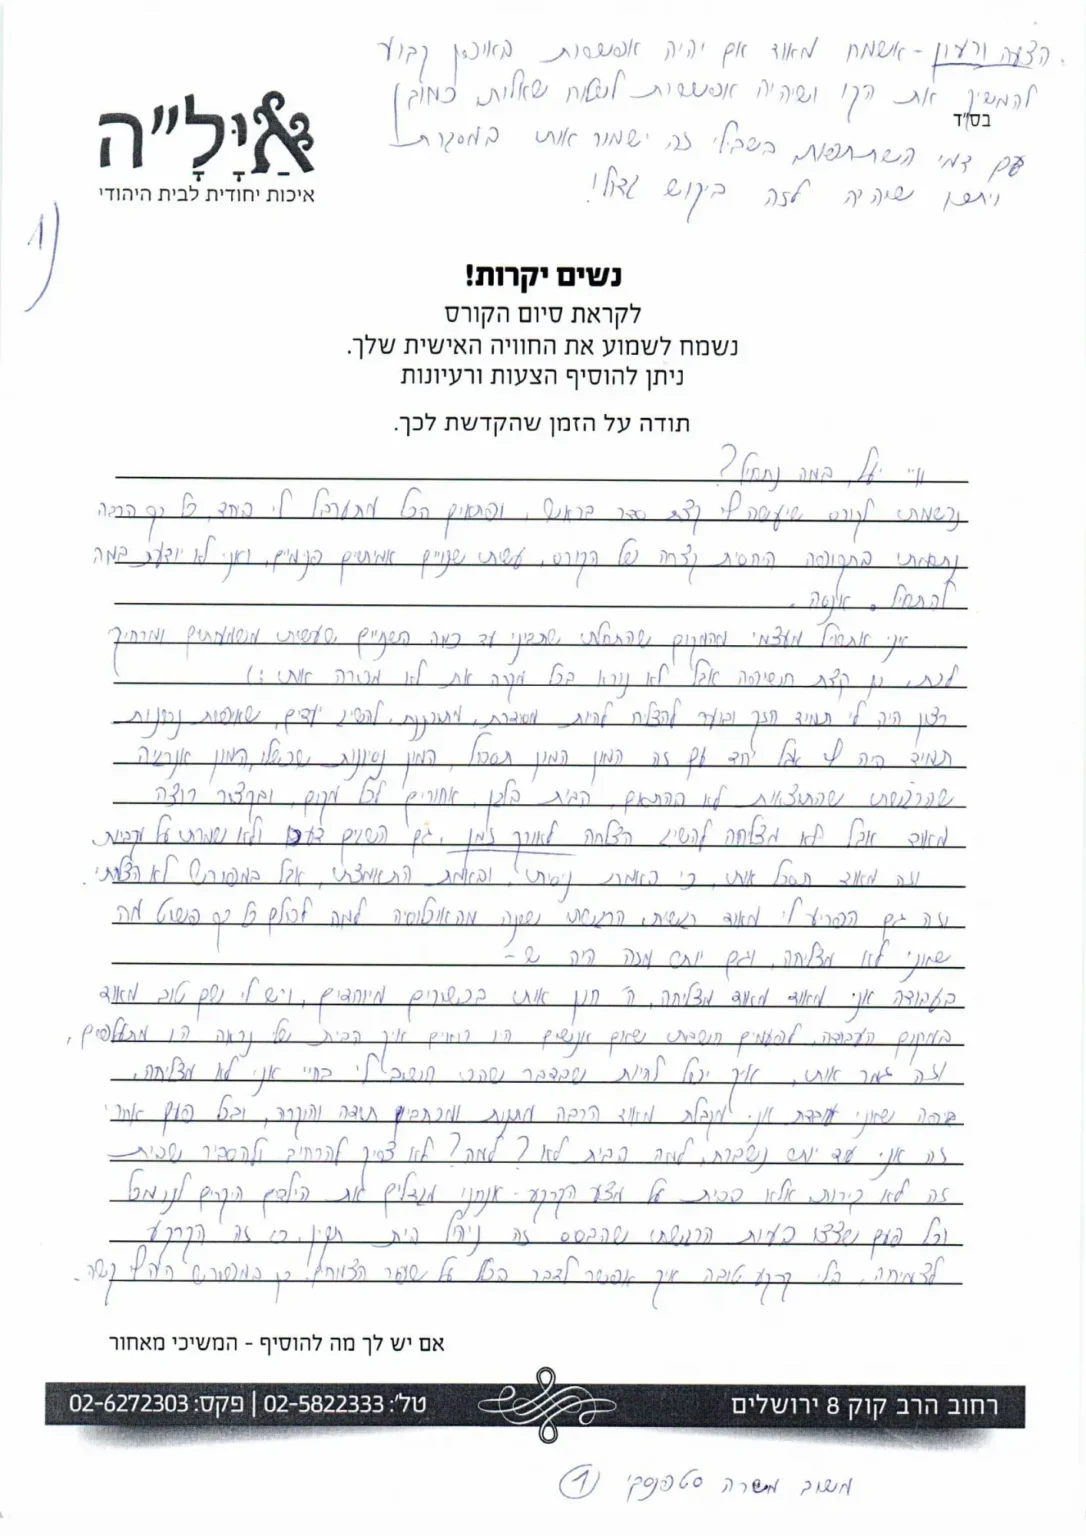 הצעה ורעיון - אשמח מאוד אם יהיה אפשרות באיזון קבוע
להמשיך את הקו ושיהיה אפשרות לשלוח שאלות, כמובן
בס"ד
עם דמי השתתפות בשבילי זה ישמור אותי במסגרת
ויתכן שיהיה לזה ביקוש גדול!
אַיָּלָ"ה
איכות יחודית לבית היהודי
(1
נשים יקרות!
לקראת סיום הקורס
נשמח לשמוע את החוויה האישית שלך.
ניתן להוסיף הצעות ורעיונות
תודה על הזמן שהקדשת לכך.
יעל, במה נתחיל?
נרשמתי לקורס שיעשה לי קצת סדר בראש, ופתאים הכל מתערבל לי ביחד, כל כך הרבה
נתרמתי בתקופה היחסית קצרה של הקורס, עשיתי שנויים אמיתיים פנימיים, ואני לא יודעת במה
להתחיל. אנסה.
אני אתחיל מעצמי מהמקום שהתחלתי שתביני עד כמה השנויים שעשיתי משמעותיים ומרחיק
לכת, כן קצת חשיפה אבל לא נורא בכל מקרה את לא מכירה אותי :)
רצון היה לי תמיד חזק ובוער להצליח להיות מסודרת, מתוקתקת, להשיג יעדים, שאיפות ורצונות
תמיד היה לי אבל יחד עם זה המון המון תסכול, המון נסיונות שכשלו, המון אנרגיה
שהרגשתי שהתוצאות לא בהתאם, הבית בלגן, אחורים לכל מקום, ובקצור רוצה
מאוד אבל לא מצליחה להשיג הצלחה לאורך זמן, גם השגים ולא שמרתי על יציבות
וזה מאוד תסכל אותי, כי באמת ניסיתי, ובאמת התאמצתי, אבל במפורש לא הצלחתי.
וזה גם הפריע לי מאוד רגשית, הרגשתי שונה מהאוכלוסיה למה לכולם כל כך פשוט מה
שאני לא מצליחה, וגם יותר מכה היה ש -
בעבודה אני מאוד מאוד מצליחה, ה' חנן אותי בכשרים מיוחדים, ויש לי שם טוב מאוד
במקום העבודה, לפעמים חשבתי שאם אנשים היו רואים איך הבית שלי נראה היו מתעלפים,
וזה גמר אותי, איך יכול להיות שבדבר שהכי חשוב לי בחיי אני לא מצליחה,
איפה שאני עובדת אני מקבלת מאוד הרבה מתנות ומכתבים תודה והוקרה, ובכל פעם אחרי
זה אני עוד יותר נשברת, למה בבית לא? למה? לא צריך להרחיב ולהסביר שבית
זה לא קירות אלא בבית על מצע הקרקע - אנחנו מגדלים את הילדים היקרים לנו מכל
וכל פעם שצצו בעיות הרגשתי שהבסיס זה ניהול בית תקין כי זה הקרקע
לצמיחה, בלי קרקע טובה איך אפשר לדבר בכלל על שעור הצמיחה? כן במפורש היה לי קשה.
אם יש לך מה להוסיף - המשיכי מאחור
רחוב הרב קוק 8 ירושלים
טל': 02-5822333 | פקס: 02-6272303
משוב משרה סטפנסקי (1)